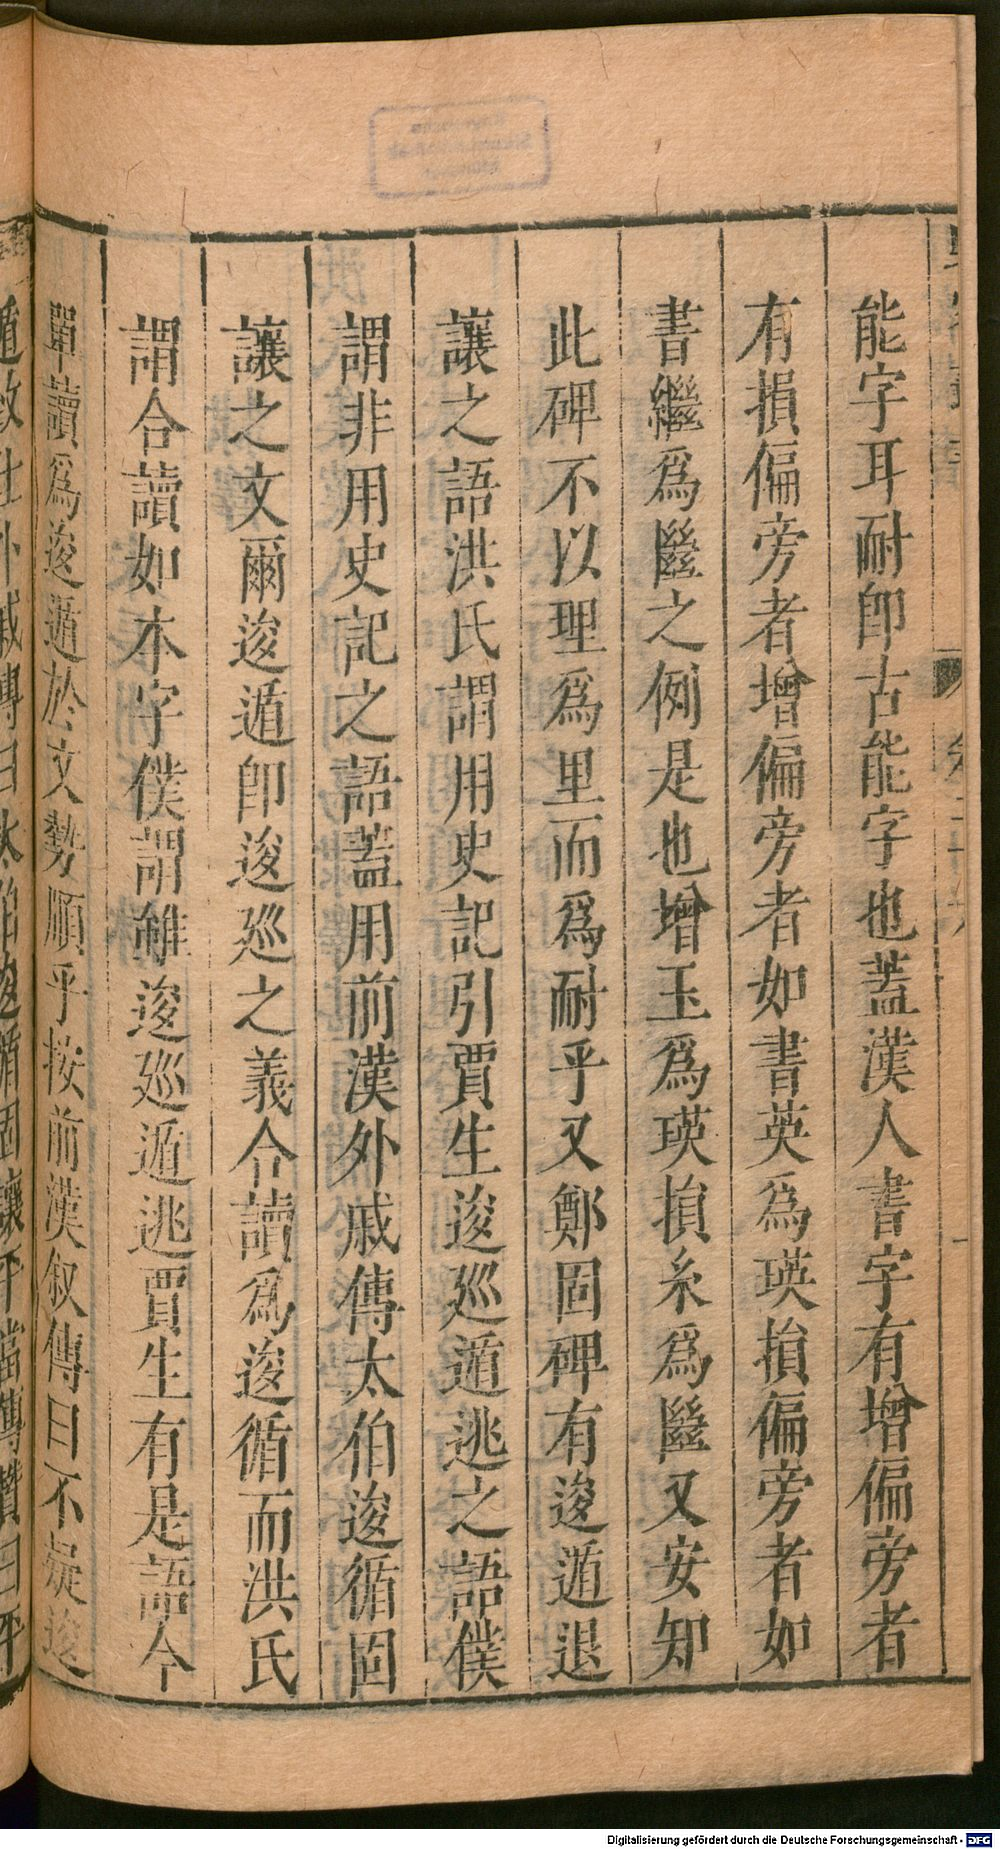 能字耳耐卽古能字也蓋漢人書字有增偏旁者
有損偏旁者增偏旁者如書英爲瑛損偏旁者如
書繼爲㡭之例是也增玉爲瑛損糸爲㡭又安知
此碑不以理爲里而爲耐乎又鄭固碑有逡遁退
讓之語洪氏謂用史記引賈生逡巡遁逃之語僕
謂非用史記之語蓋用前漢外戚傳太伯逡循固
讓之文爾逡遁卽逡巡之義今讀爲逡循而洪氏
謂合讀如本字僕謂雖逡巡遁逃賈生有是語今
單讀爲逡遁於文勢順乎按前漢叙傳曰不疑逡
Digitalisierung gefördert durch die Deutsche Forschungsgemeinschaft - DFG